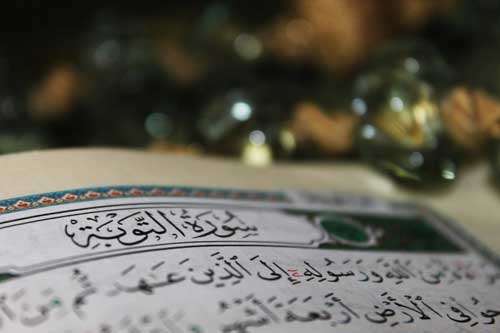 سُورَةُ التَّوْبَةِ
مِّنَ اللَّهِ وَرَسُولِهِ إِلَى الَّذِينَ عَٰهَدتُّم مِّنَ
فِي الْأَرْضِ أَرْبَعَةَ أَشْهُرٍ